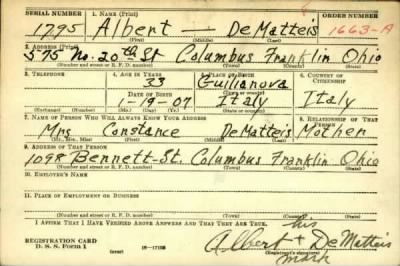 SERIAL NUMBER 1. NAME (Print) ORDER NUMBER
1795 Albert — DeMatteis 1663-A
(First) (Middle) (Last)
2. ADDRESS (Print)
575 no. 20th St Columbus Franklin Ohio
(Number and street or R. F. D. number) (Town) (County) (State)
3. TELEPHONE 4. AGE IN YEARS 5. PLACE OF BIRTH 6. COUNTRY OF CITIZENSHIP
33 Guilianova
DATE OF BIRTH (Town or county)
1-19-07 Italy Italy
(Exchange) (Number) (Mo.) (Day) (Yr.) (State or country)
7. NAME OF PERSON WHO WILL ALWAYS KNOW YOUR ADDRESS 8. RELATIONSHIP OF THAT PERSON
Mrs Constance DeMatteis Mother
(Mr., Mrs., Miss) (First) (Middle) (Last)
9. ADDRESS OF THAT PERSON
1098 Bennett-St. Columbus Franklin Ohio
(Number and street or R. F. D. number) (Town) (County) (State)
10. EMPLOYER'S NAME
11. PLACE OF EMPLOYMENT OR BUSINESS
(Number and street or R. F. D. number) (Town) (County) (State)
I AFFIRM THAT I HAVE VERIFIED ABOVE ANSWERS AND THAT THEY ARE TRUE.
his
REGISTRATION CARD Albert + DeMatteis
D. S. S. Form 1 (over) mark